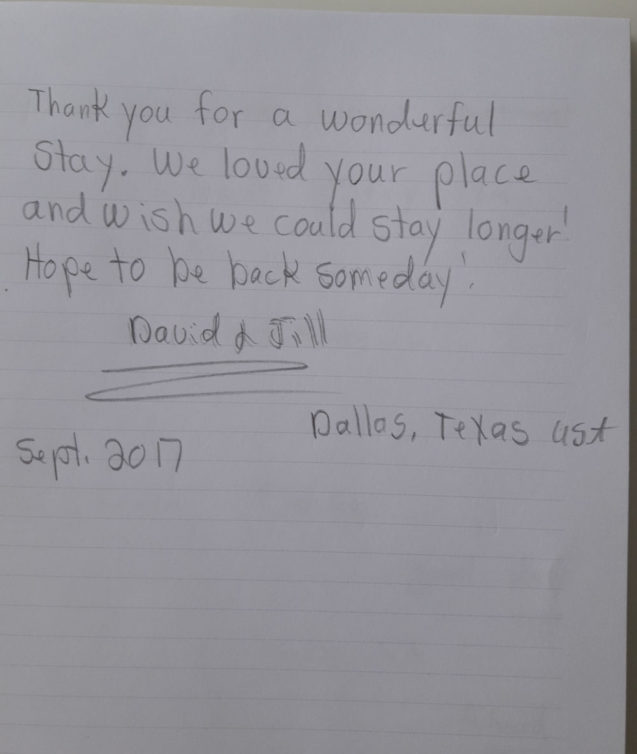 Thank you for a wonderful
stay. We loved your place
and wish we could stay longer!
Hope to be back someday!
David & Jill
Dallas, Texas USA
Sept. 2017